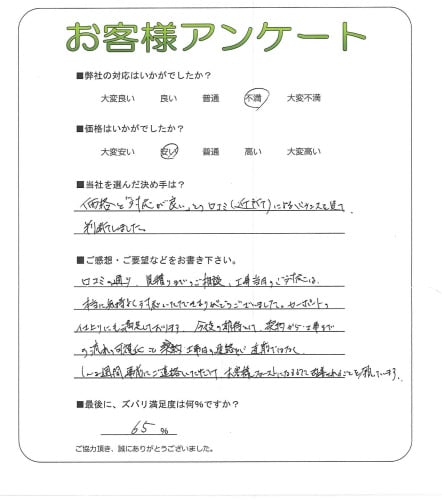 お客様アンケート
■弊社の対応はいかがでしたか？
大変良い 良い 普通 不満 大変不満
■価格はいかがでしたか？
大変安い 安い 普通 高い 大変高い
■当社を選んだ決め手は？
価格と「対応が良い」との口コミ(近所で)によるバランスを見て、
判断しました。
■ご感想・ご要望などをお書き下さい。
口コミの通り、見積りからのご相談、工事当日のご対応は、
本当に気持ちよく対応いただきありがとうございました。カーポートの
仕上りにも満足しております。今後の期待として、契約から工事まで
の流れの可視化 工事日の連絡が直前ではなく、
1～2週間事前にご連絡いただけ お客様ファーストになるように されることを願っています。
■最後に、ズバリ満足度は何％ですか？
65 %
ご協力頂き、誠にありがとうございました。